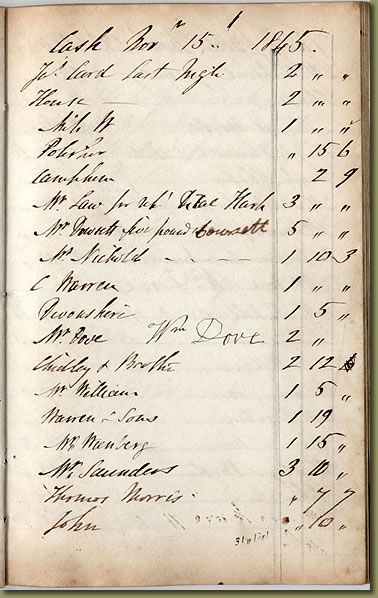 Cash Nov 15.. 1845.
Card Last Nigh 2 „ „
House — 2 „ „
W 1 „ „
„ 15 6
Camphene 2 9
Mr Law for Hark 3 „ „
Mr Dowsett five pound Dowsett 5 „ „
Mr Nichold - - - 1 10 3
C Warren 1 „ „
Devonshire 1 5 „
Mr Dove Wm Dove 2 „
Chidley & Boothe 2 12
Mr William 1 5 „
Warren & Sons 1 19
Mr Wanberg 1 15 „
Mr Saunders 3 10 „
Thomas Morris „ 7 7
John „ 10 „